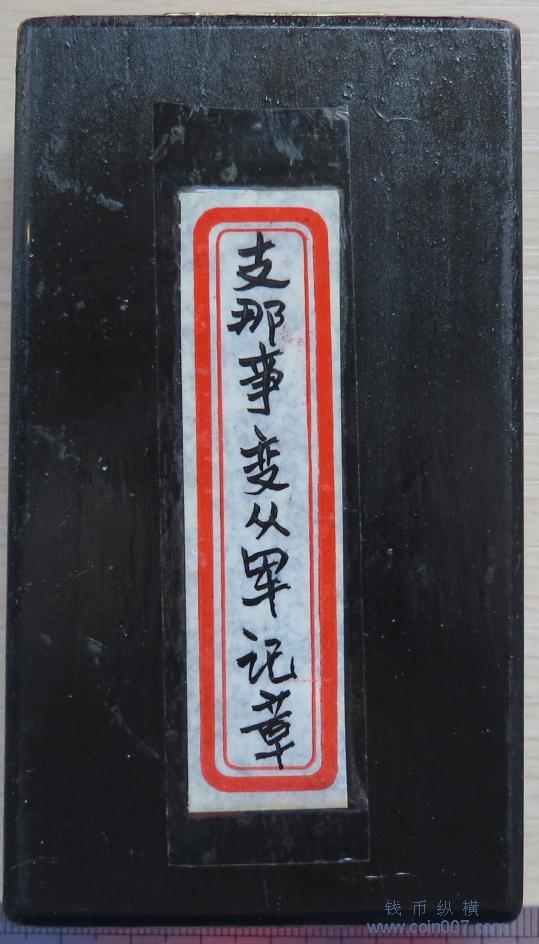 支那事变从军记章
钱币纵横
www.coin007.com